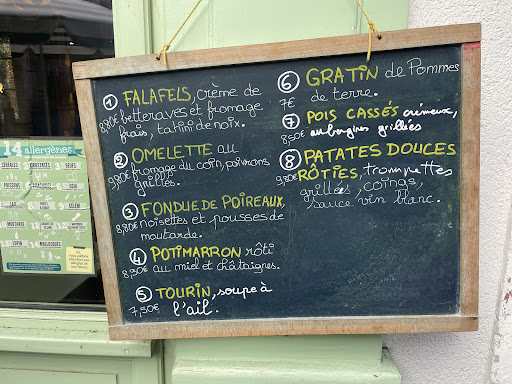 ① FALAFELS, crème de
8,80€ betteraves et fromage
frais, tahini de noix.
② OMELETTE au
9,80€ fromage du coin, poivrons
grillés.
③ FONDUE DE POIREAUX,
8,80€ noisettes et pousses de
moutarde.
④ POTIMARRON rôti
8,50€ au miel et châtaignes.
⑤ TOURIN, soupe à
7,50€ l'ail.
⑥ GRATIN de Pommes
7€ de terre.
⑦ POIS CASSÉS crémeux,
8,50€ aubergines grillées
⑧ PATATES DOUCES
9,80€ RÔTIES, trompettes
grillées, coings,
sauce vin blanc.
14 allergènes
CÉRÉALES CRUSTACÉS OEUFS
POISSONS SOJA
LAIT CÉLERI
MOUTARDE
LUPIN MOLLUSQUES